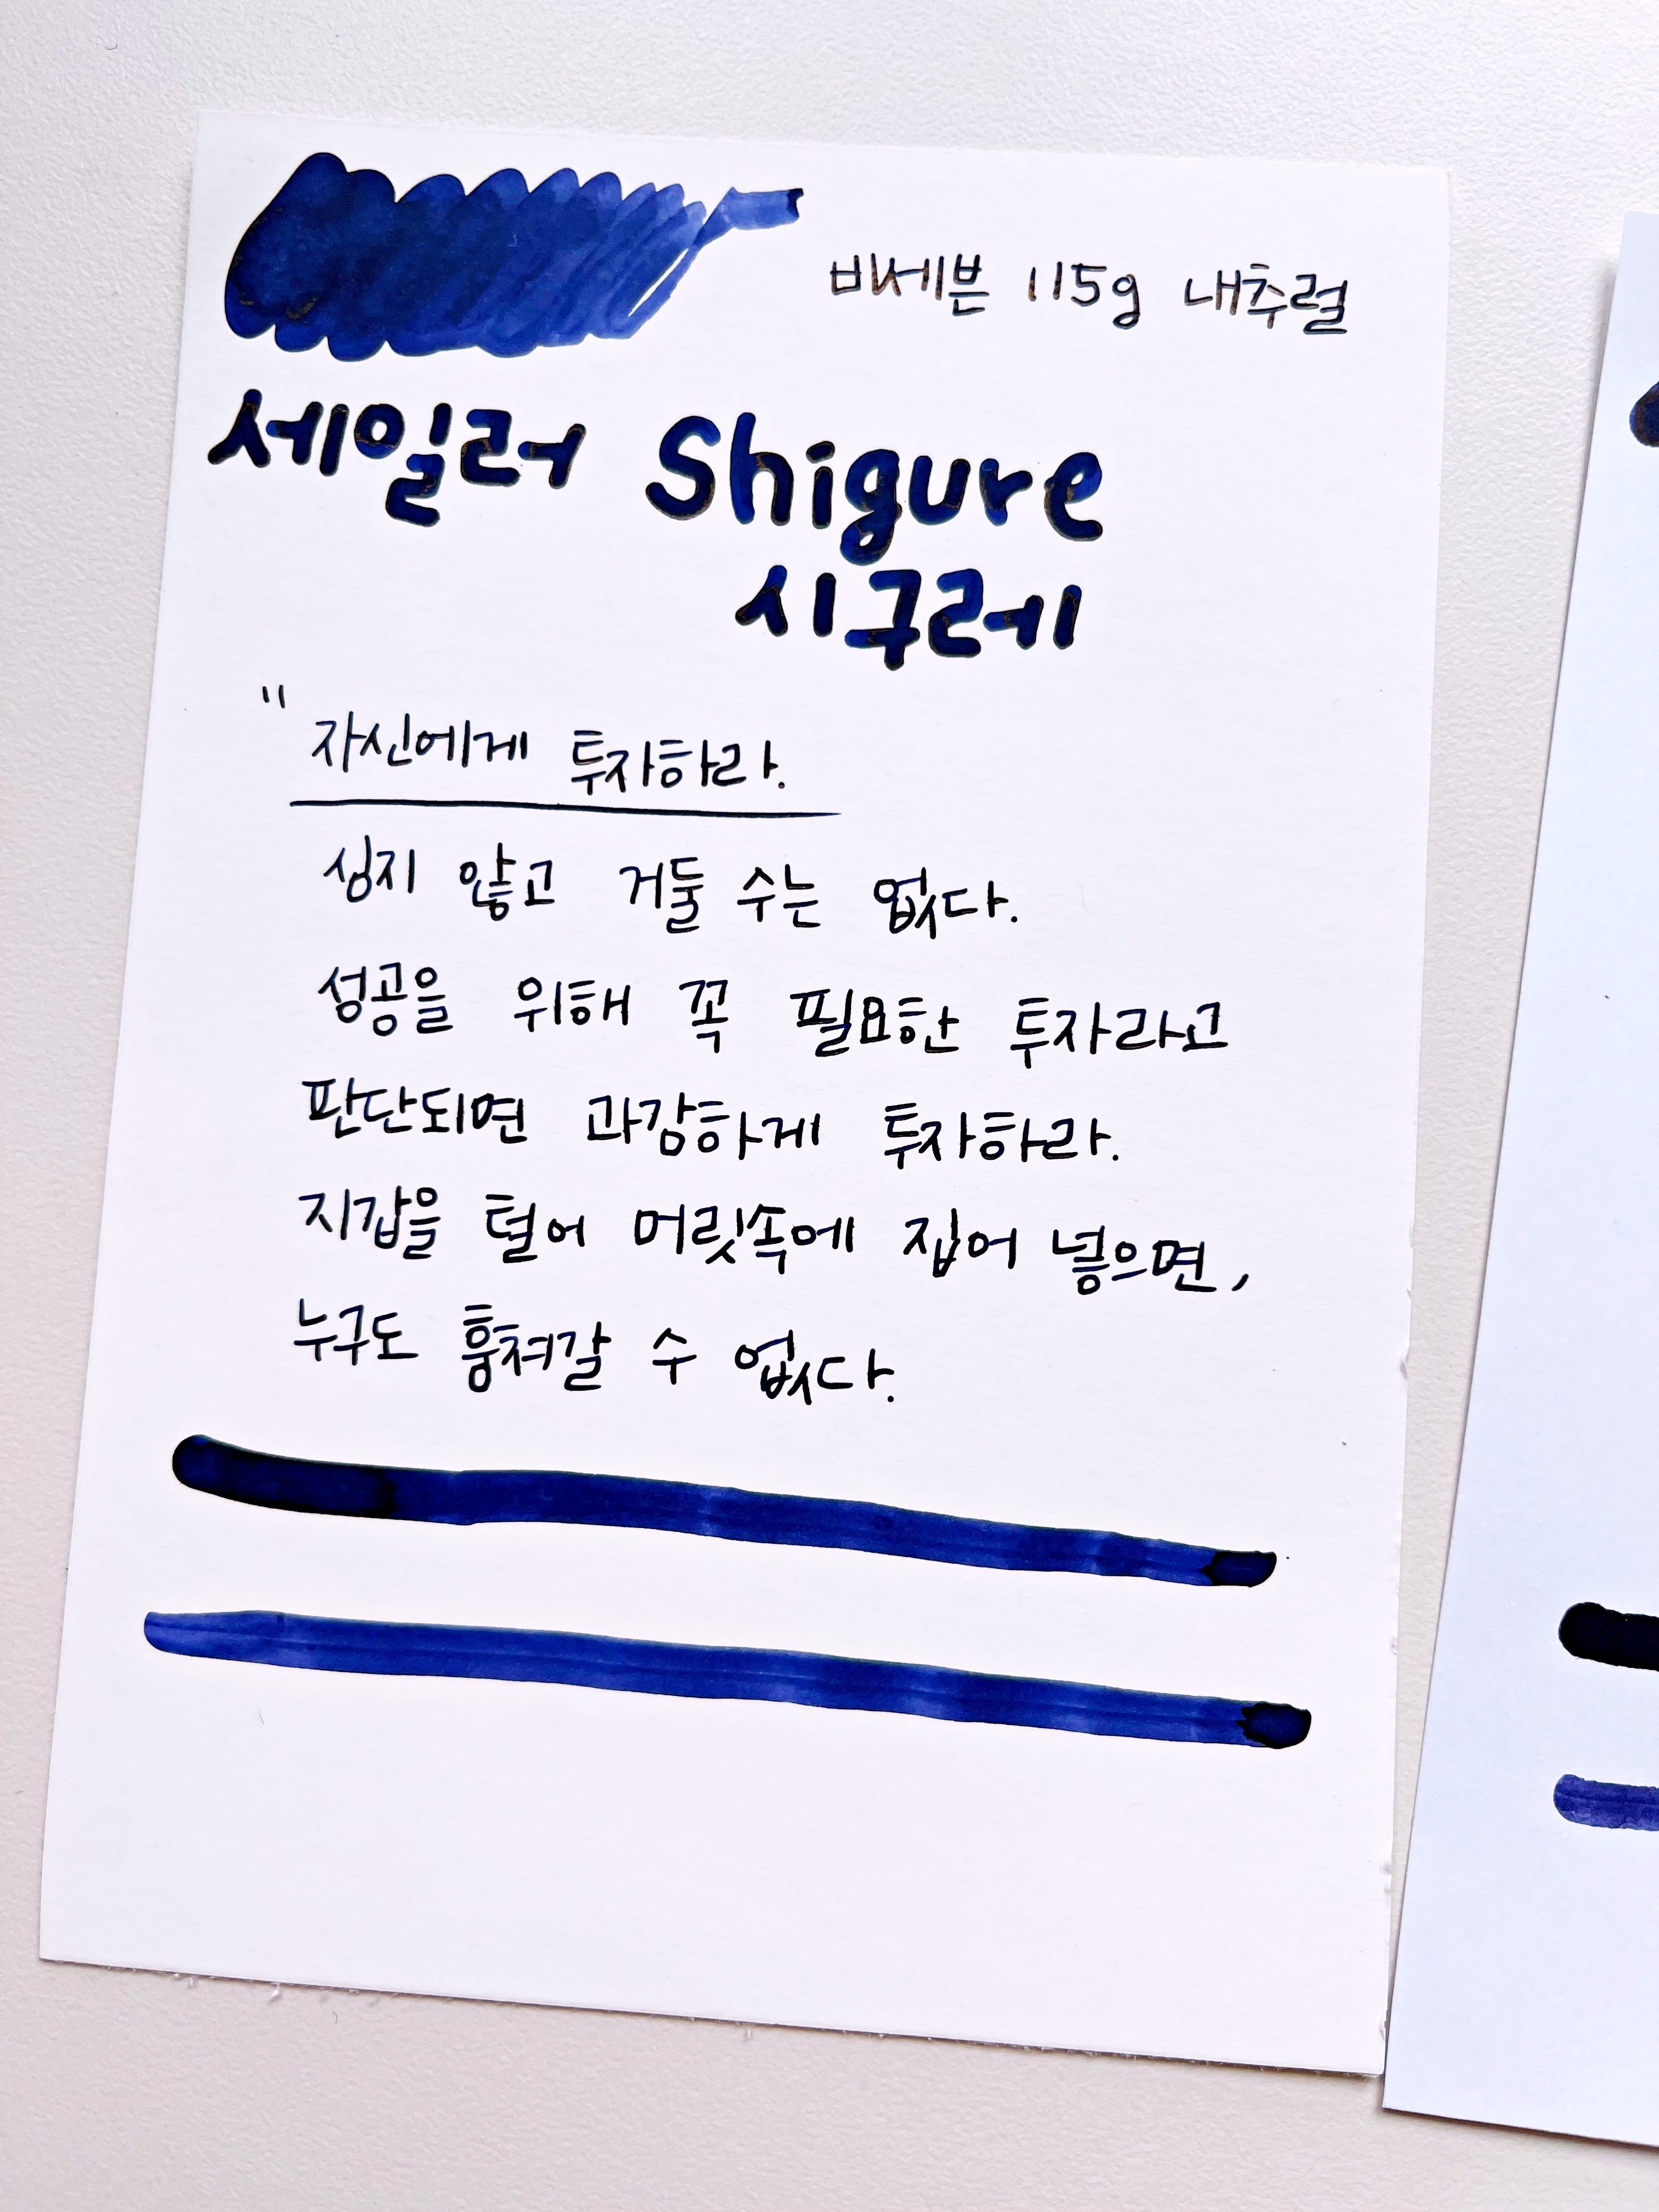 바세븐 115g 내추럴
세일러 Shigure
시구레
" 자신에게 투자하라.
심지 않고 거둘 수는 없다.
성공을 위해 꼭 필요한 투자라고
판단되면 과감하게 투자하라.
지갑을 털어 머릿속에 집어 넣으면,
누구도 훔쳐갈 수 없다.